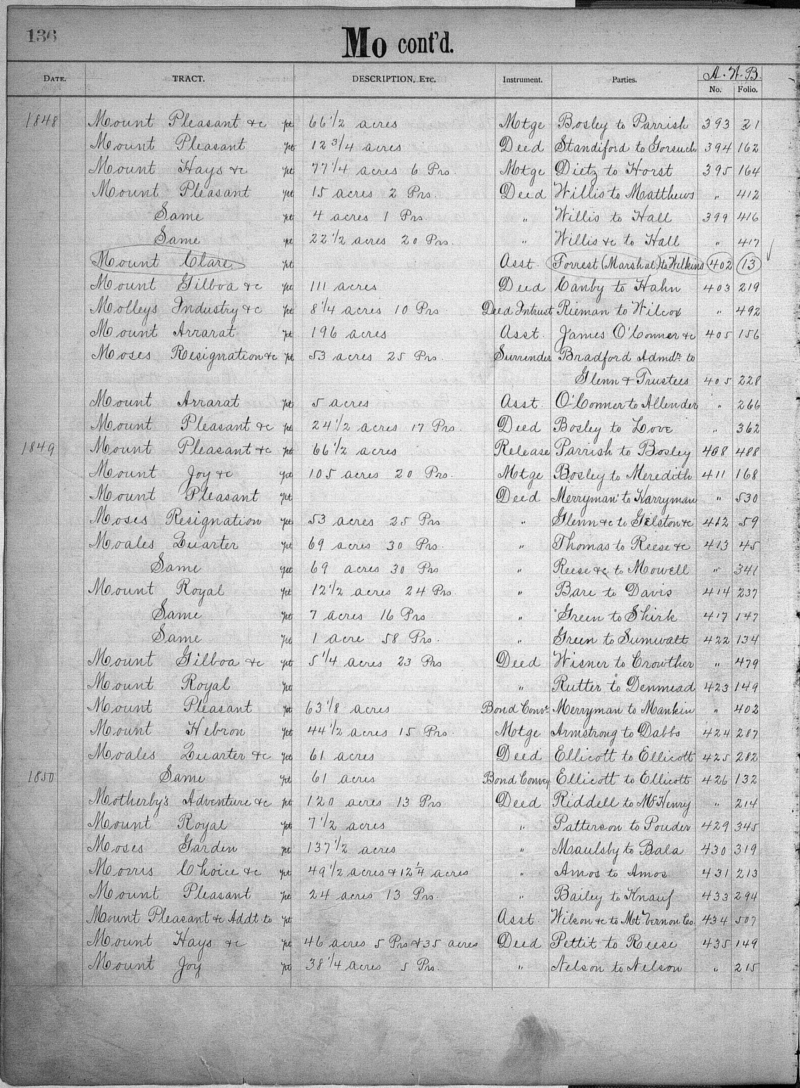 136
Mo cont'd.
DATE. TRACT. DESCRIPTION, ETC. Instrument. Parties. A. W. B
No. Folio.
1848 Mount Pleasant &c pt 66 1/2 acres Mtge Bosley to Parrish 393 21
Mount Pleasant pt 12 3/4 acres Deed Standiford to Gorsuch 394 162
Mount Hays &c pt 77 1/4 acres 6 Prs Mtge Dietz to Horst 395 164
Mount Pleasant pt 15 acres 2 Prs Deed Willis to Matthews " 412
Same pt 4 acres 1 Prs " Willis to Hall 399 416
Same pt 22 1/2 acres 20 Prs. " Willis &c to Hall " 417
Mount Clare pt Asst Forrest (Marshal) to Wilkins 402 13
Mount Gilboa &c pt 111 acres Deed Canby to Hahn 403 219
Molleys Industry &c pt 8 1/4 acres 10 Prs Deed Intrust Rieman to Wilcox " 492
Mount Arrarat pt 196 acres Asst James O'Conner &c 405 156
Moses Resignation &c pt 53 acres 25 Prs Surrender Bradford Admr. to
Glenn & Trustees 405 228
Mount Arrarat pt 5 acres Asst O'Conner to Allender " 266
Mount Pleasant &c pt 24 1/2 acres 17 Prs. Deed Bosley to Love " 362
1849 Mount Pleasant &c pt 66 1/2 acres Release Parrish to Bosley 408 488
Mount Joy &c pt 105 acres 20 Prs. Mtge Bosley to Meredith 411 168
Mount Pleasant pt Deed Merryman to Harryman " 530
Moses Resignation pt 53 acres 25 Prs " Glenn &c to Gilston &c 412 59
Moales Quarter pt 69 acres 30 Prs " Thomas to Reese &c 413 45
Same pt 69 acres 30 Prs " Reese &c to Mowell " 341
Mount Royal pt 12 1/2 acres 24 Prs " Bare to Davis 414 237
Same pt 7 acres 16 Prs " Green to Shirk 417 147
Same pt 1 acre 58 Prs. " Green to Sumwalt 422 134
Mount Gilboa &c pt 5 1/4 acres 23 Prs Deed Wisner to Crowther " 479
Mount Royal pt " Rutter to Denmead 423 149
Mount Pleasant pt 63 1/8 acres Bond Conv. Merryman to Mankin " 402
Mount Hebron pt 44 1/2 acres 15 Prs Mtge Armstrong to Dabbs 424 287
Moales Quarter &c pt 61 acres Deed Ellicott to Ellicott 425 282
1850 Same pt 61 acres Bond Convey Ellicott to Ellicott 426 132
Motherby's Adventure &c pt 120 acres 13 Prs Deed Riddell to McHenry " 214
Mount Royal pt 7 1/2 acres " Patterson to Pouder 429 345
Moses Garden pt 137 1/2 acres " Maulsby to Bala 430 319
Morris Choice &c pt 49 1/2 acres & 12 1/4 acres " Amos to Amos 431 213
Mount Pleasant pt 24 acres 13 Prs " Bailey to Knauf 433 294
Mount Pleasant & Addt to pt Asst Wilson &c to Mt Vernon Co. 434 507
Mount Hays &c pt 46 acres 5 Prs & 35 acres Deed Pettit to Reese 435 149
Mount Joy pt 38 1/4 acres 5 Prs. " Nelson to Nelson " 215